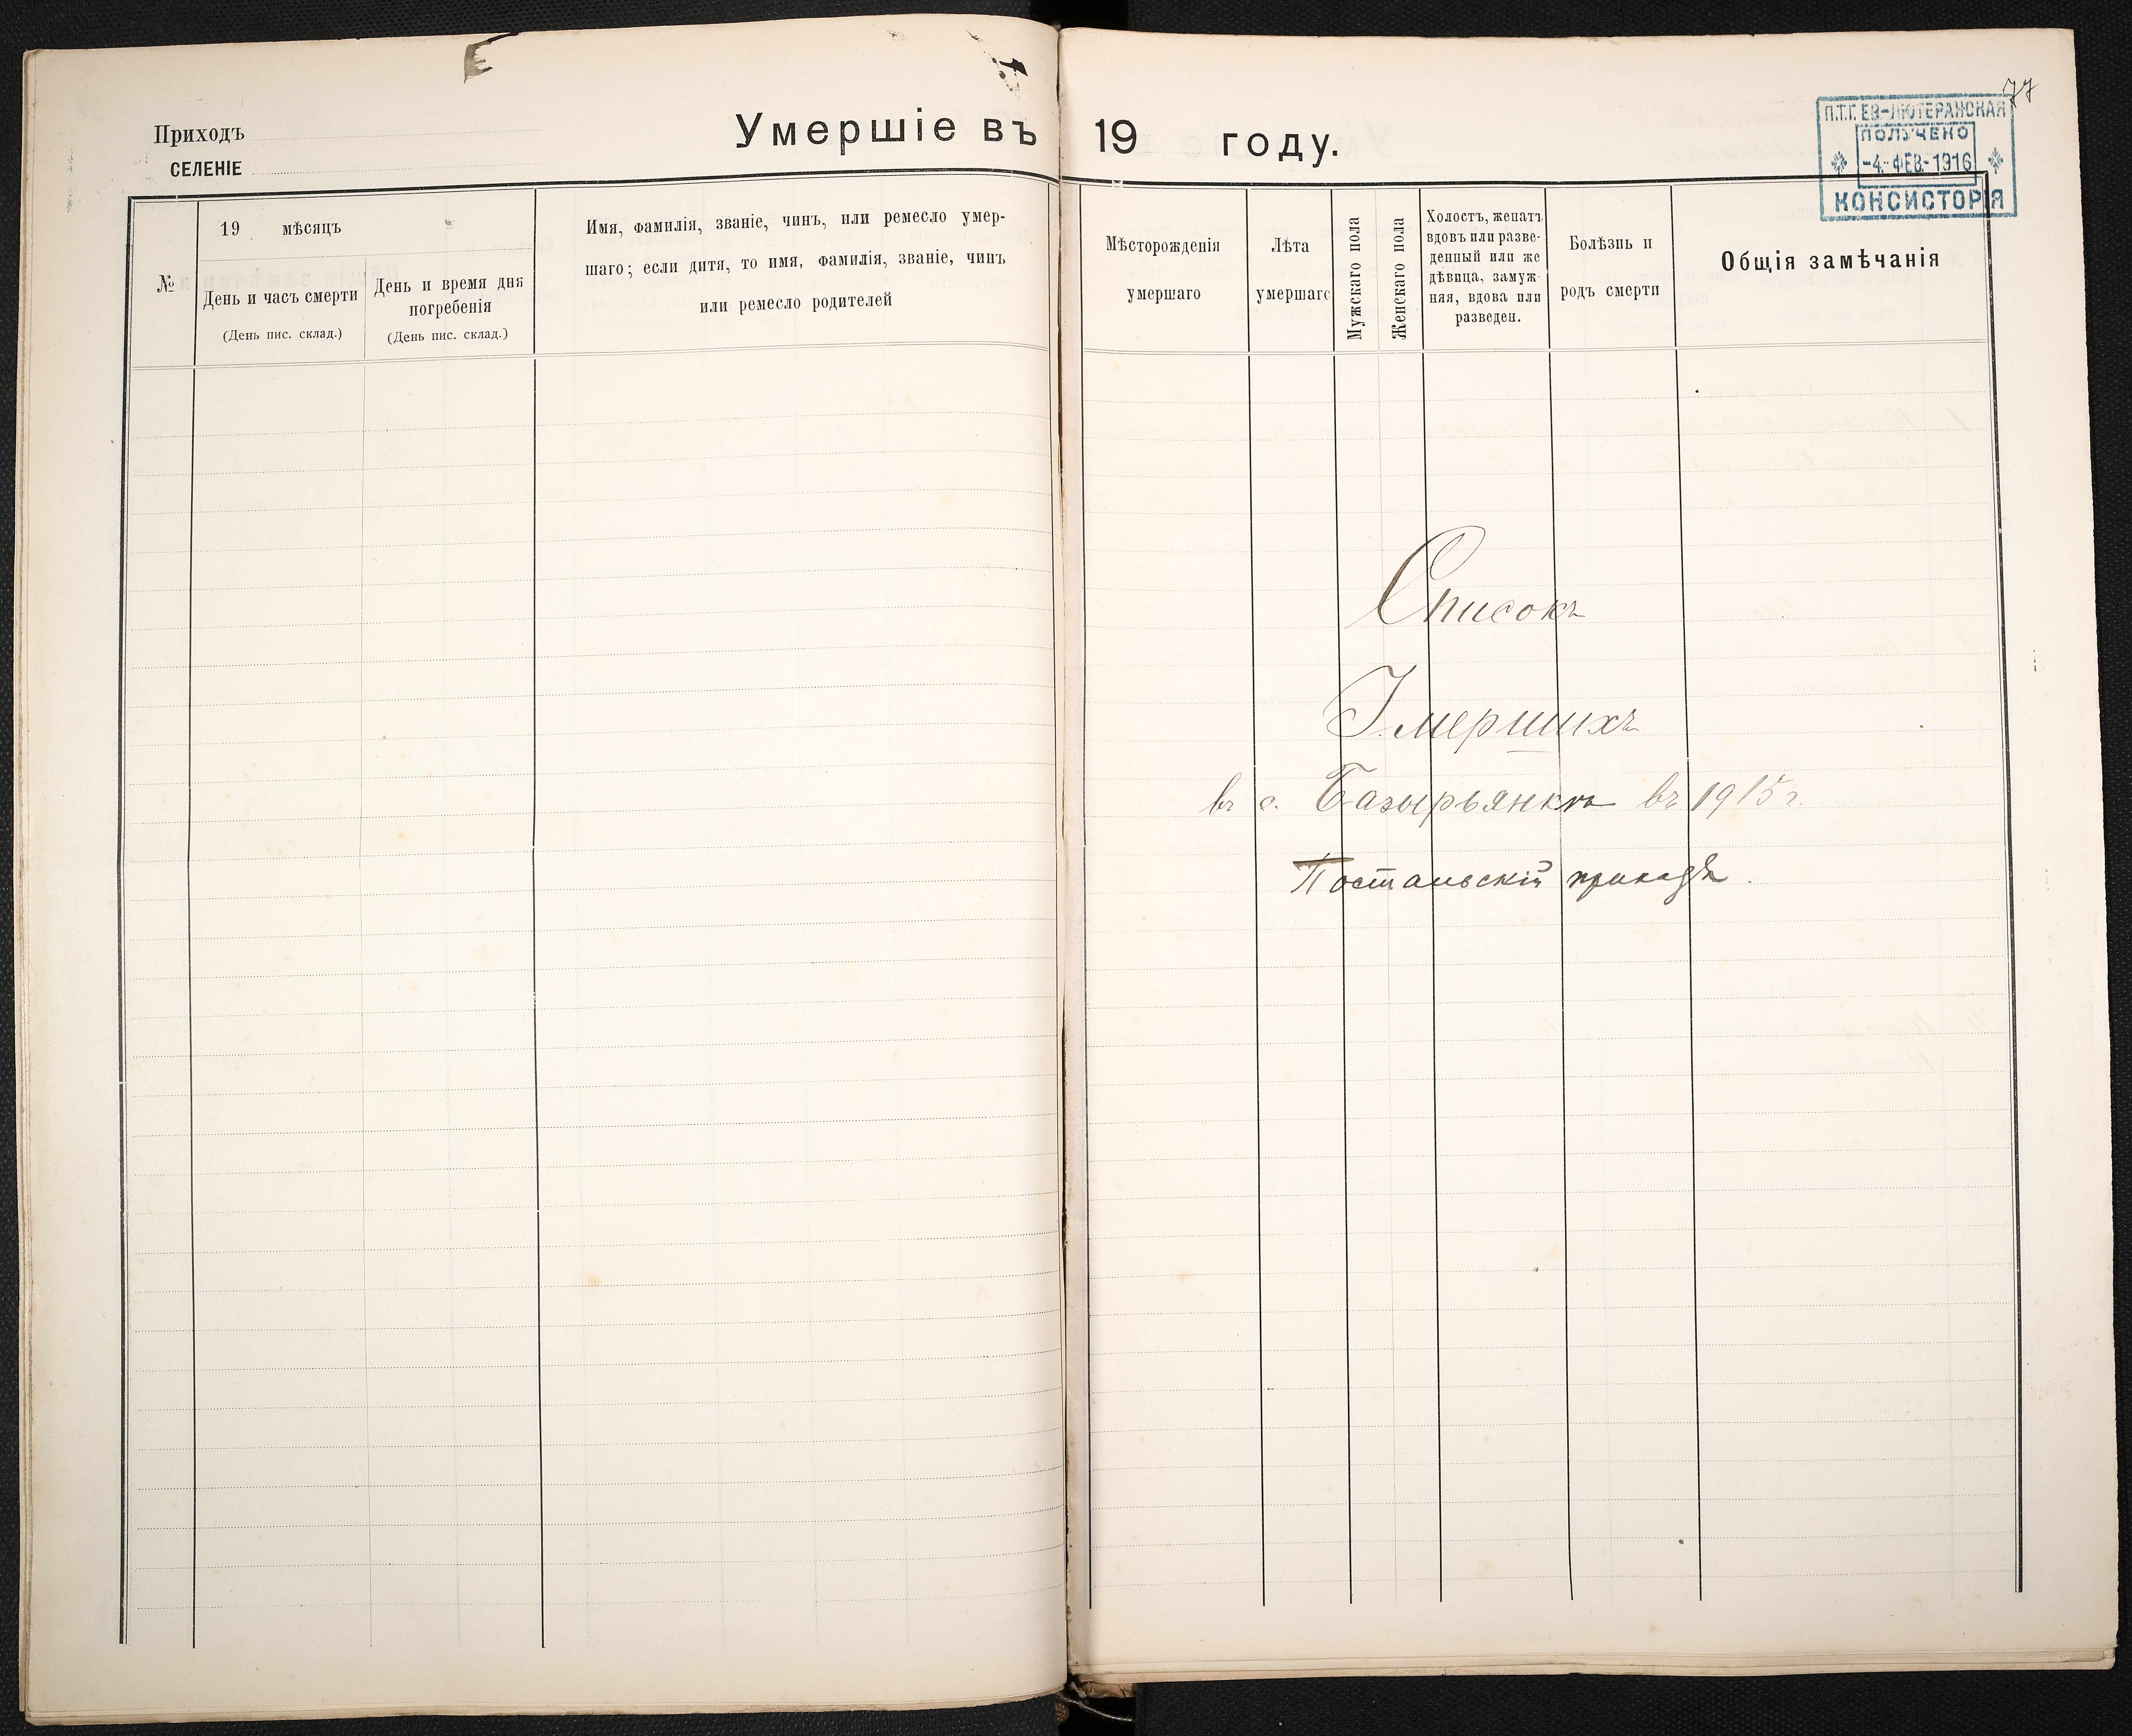 77
П.Т.Г. ЕВ-ЛЮТЕРАНСКАЯ
ПОЛУЧЕНО
-4-ФЕВ-1916
КОНСИСТОРІЯ
Приходъ
СЕЛЕНІЕ
Умершіе въ 19 году.
№
19 мѣсяцъ
День и часъ смерти
(День пис. склад.)
День и время дня
погребенія
(День пис. склад.)
Имя, фамилія, званіе, чинъ, или ремесло умер-
шаго; если дитя, то имя, фамилія, званіе, чинъ
или ремесло родителей
Мѣсторожденія
умершаго
Лѣта
умершаго
Мужскаго пола
Женскаго пола
Холостъ, женатъ
вдовъ или разве-
денный или же
дѣвица, замуж-
няя, вдова или
разведен.
Болѣзнь и
родъ смерти
Общія замѣчанія
Списокъ
Умершихъ
въ с. Базырьянкѣ въ 1915 г.
Постальскій приходъ.